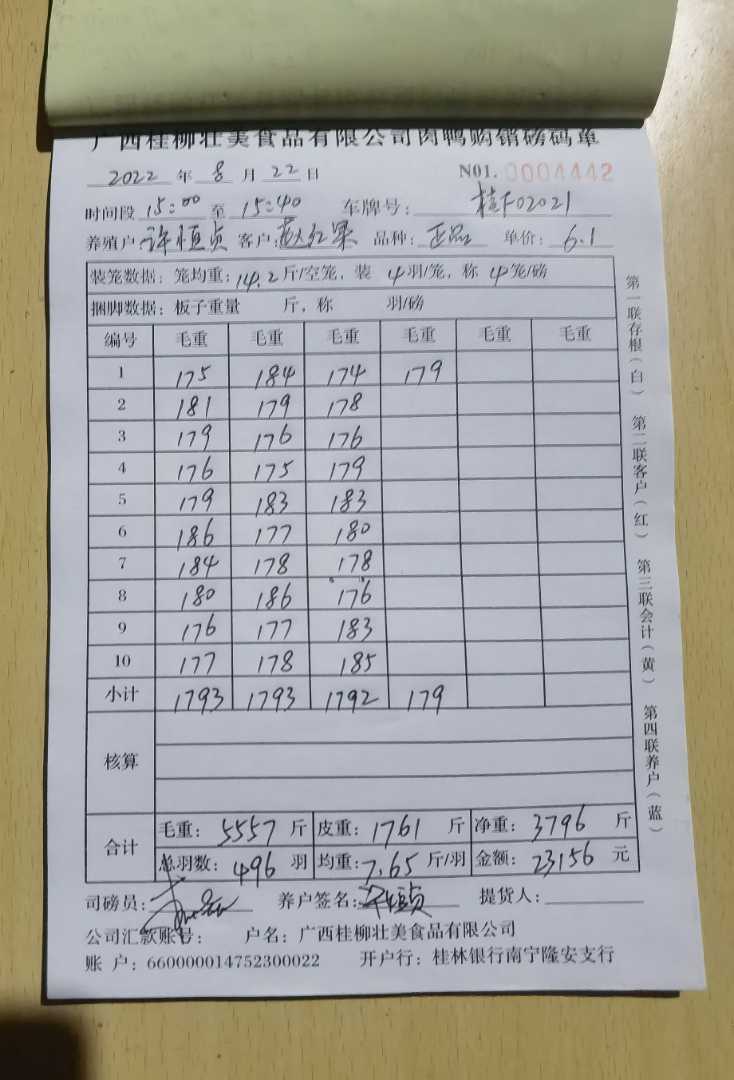 广西桂柳壮美食品有限公司肉鸭购销磅码单
2022 年 8 月 22 日 N01. 0004442
时间段 15:00 至 15:40 车牌号: 桂F02021
养殖户: 许恒贞 客户: 赵红果 品种: 正品 单价: 6.1
装笼数据: 笼均重: 14.2 斤/空笼, 装 4 羽/笼, 称 4 笼/磅
捆脚数据: 板子重量 斤, 称 羽/磅
编号 毛重 毛重 毛重 毛重 毛重 毛重
1 175 184 174 179
2 181 179 178
3 179 176 176
4 176 175 179
5 179 183 183
6 186 177 180
7 184 178 178
8 180 186 176
9 176 177 183
10 177 178 185
小计 1793 1793 1792 179
核算
合计 毛重: 5557 斤 皮重: 1761 斤 净重: 3796 斤
总羽数: 496 羽 均重: 7.65 斤/羽 金额: 23156 元
司磅员: 养户签名: 提货人:
公司汇款账号: 户名: 广西桂柳壮美食品有限公司
账 户: 660000014752300022 开户行: 桂林银行南宁隆安支行
第一联存根(白) 第二联客户(红) 第三联会计(黄) 第四联养户(蓝)